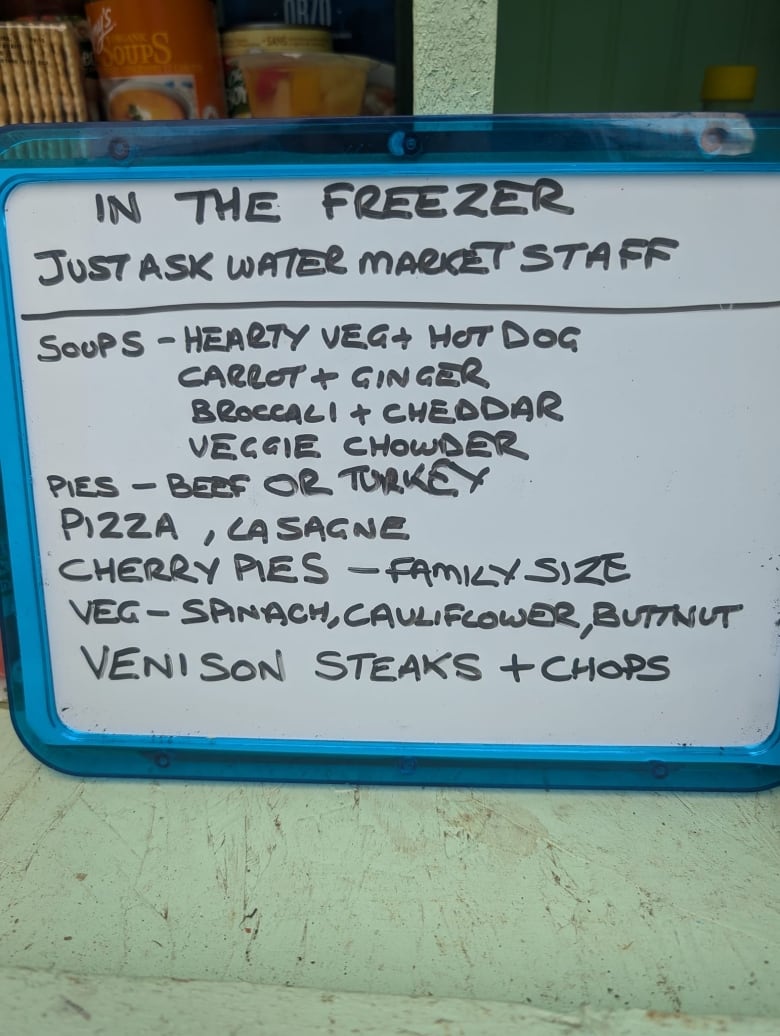 ORZO
ORGANIC
SOUPS
IN THE FREEZER
JUST ASK WATER MARKET STAFF
SOUPS - HEARTY VEG + HOT DOG
CARROT + GINGER
BROCCALI + CHEDDAR
VEGGIE CHOWDER
PIES - BEEF OR TURKEY
PIZZA , LASAGNE
CHERRY PIES - FAMILY SIZE
VEG - SPINACH, CAULIFLOWER, BUTTNUT
VENISON STEAKS + CHOPS